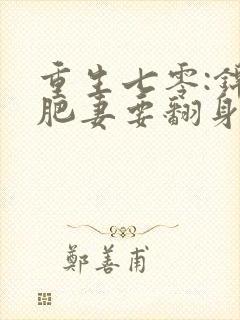 重生七零:锦
肥妻要翻身
鄭善甫